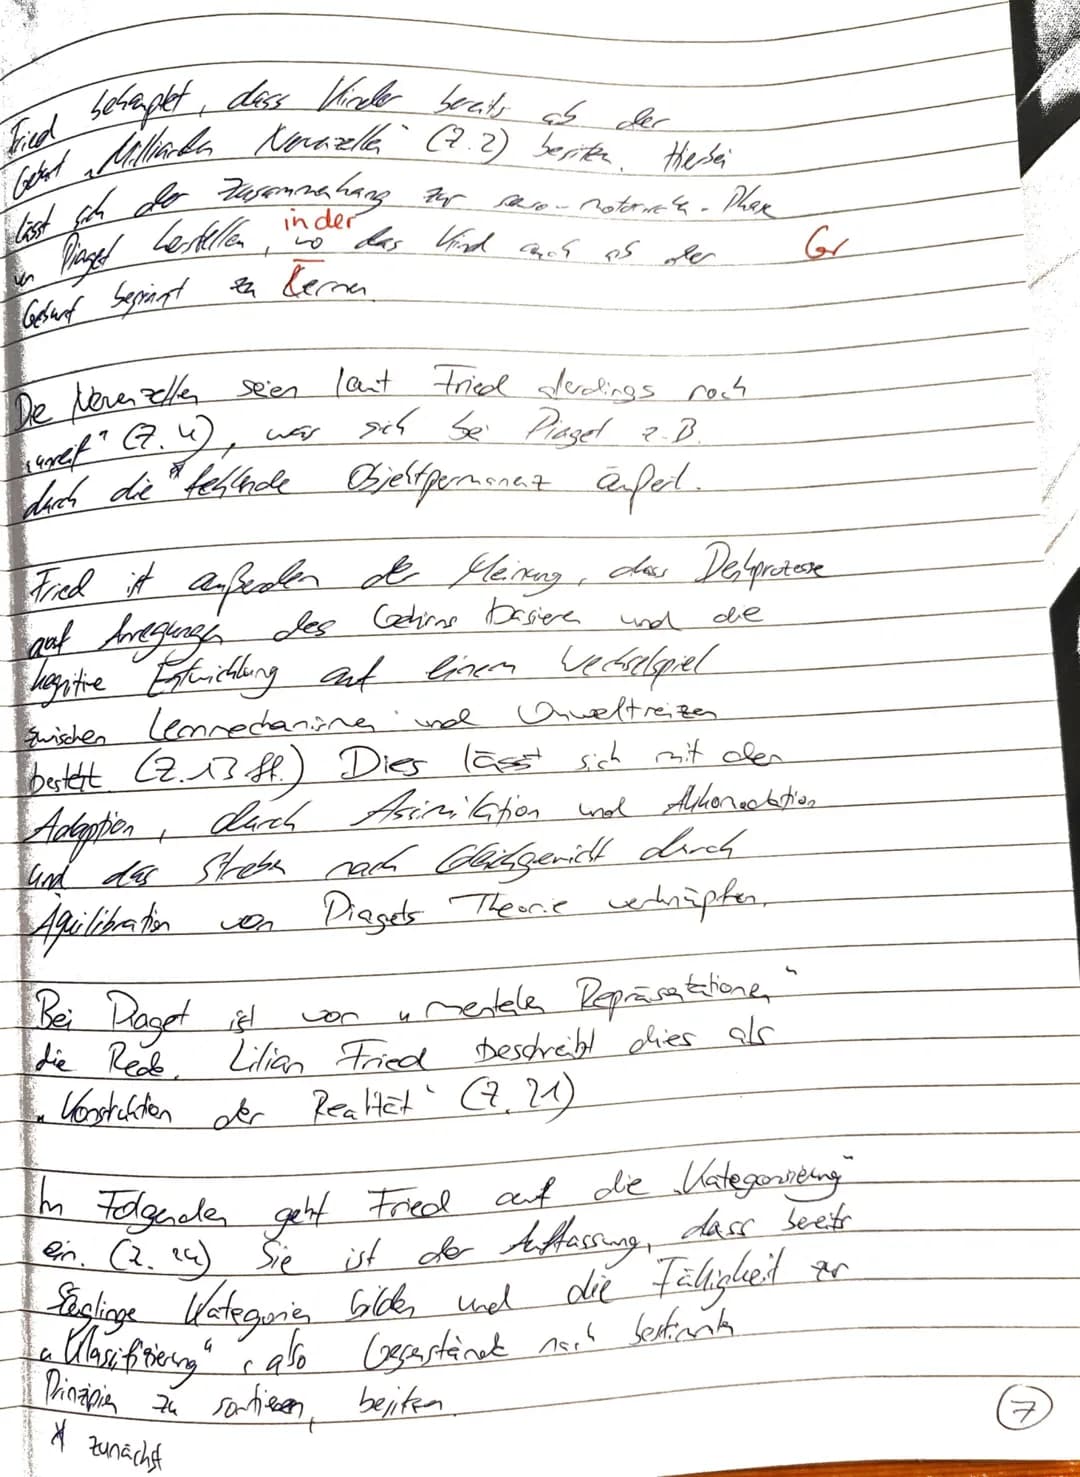 Fried behauptet, dass Kinder bereits ab der
Geburt „Milliarden Nervenzellen" (Z. 2) besitzen. Hierbei
lässt sich der Zusammenhang zur senso-motorischen-Phase
von Piaget herstellen, wo das Kind auch ab der
in der
Gr
Geburt beginnt zu lernen.
Die Nervenzellen seien laut Fried allerdings noch
„unreif" (Z. 4), was sich bei Piaget z.B.
durch die * fehlende Objektpermanenz äußert.
Fried ist außerdem der Meinung, dass Denkprozesse
auf Anregungen des Gehirns basieren und die
kognitive Entwicklung auf einem Wechselspiel
zwischen Lernmechanismen und Umweltreizen
besteht (Z. 13 ff.) Dies lässt sich mit der
Adaption, durch Assimilation und Akkomodation
und das Streben nach Gleichgewicht durch
Äquilibration von Piagets Theorie verknüpfen.
Bei Piaget ist von „mentalen Repräsentationen"
die Rede. Lilian Fried beschreibt dies als
„Konstruktion der Realität" (Z. 21)
Im Folgenden geht Fried auf die „Kategorisierung"
ein. (Z. 24) Sie ist der Auffassung, dass bereits
Säuglinge Kategorien bilden und die Fähigkeit zur
„Klassifizierung", also Gegenstände nach bestimmten
Prinzipien zu sortieren, besitzen.
* zunächst
7